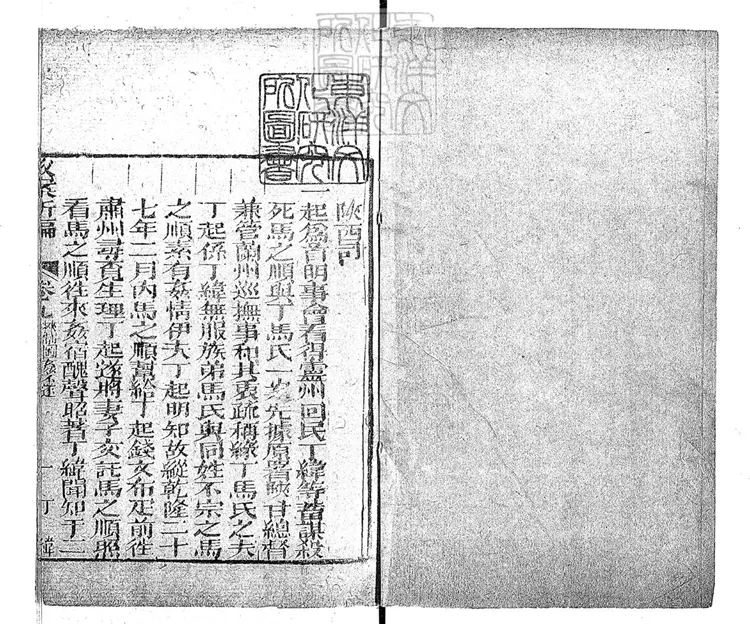 東洋文
化研究
所圖書
陝西司
一起爲首明事會看得靈州回民丁緯等蓄謀殺
死馬之順與丁馬氏一案先據原署陝甘總督
兼管蘭州巡撫事和其衷疏稱緣丁馬氏之夫
丁起係丁緯無服族弟馬氏與同姓不宗之馬
之順素有姦情伊夫丁起明知故縱乾隆二十
七年二月內馬之順幫給丁起錢文布疋前往
肅州尋覓生理丁起遂將妻子亥託馬之順照
看馬之順往來姦宿醜聲昭著丁緯聞知于二
新編 卷九 姦 一 丁緯